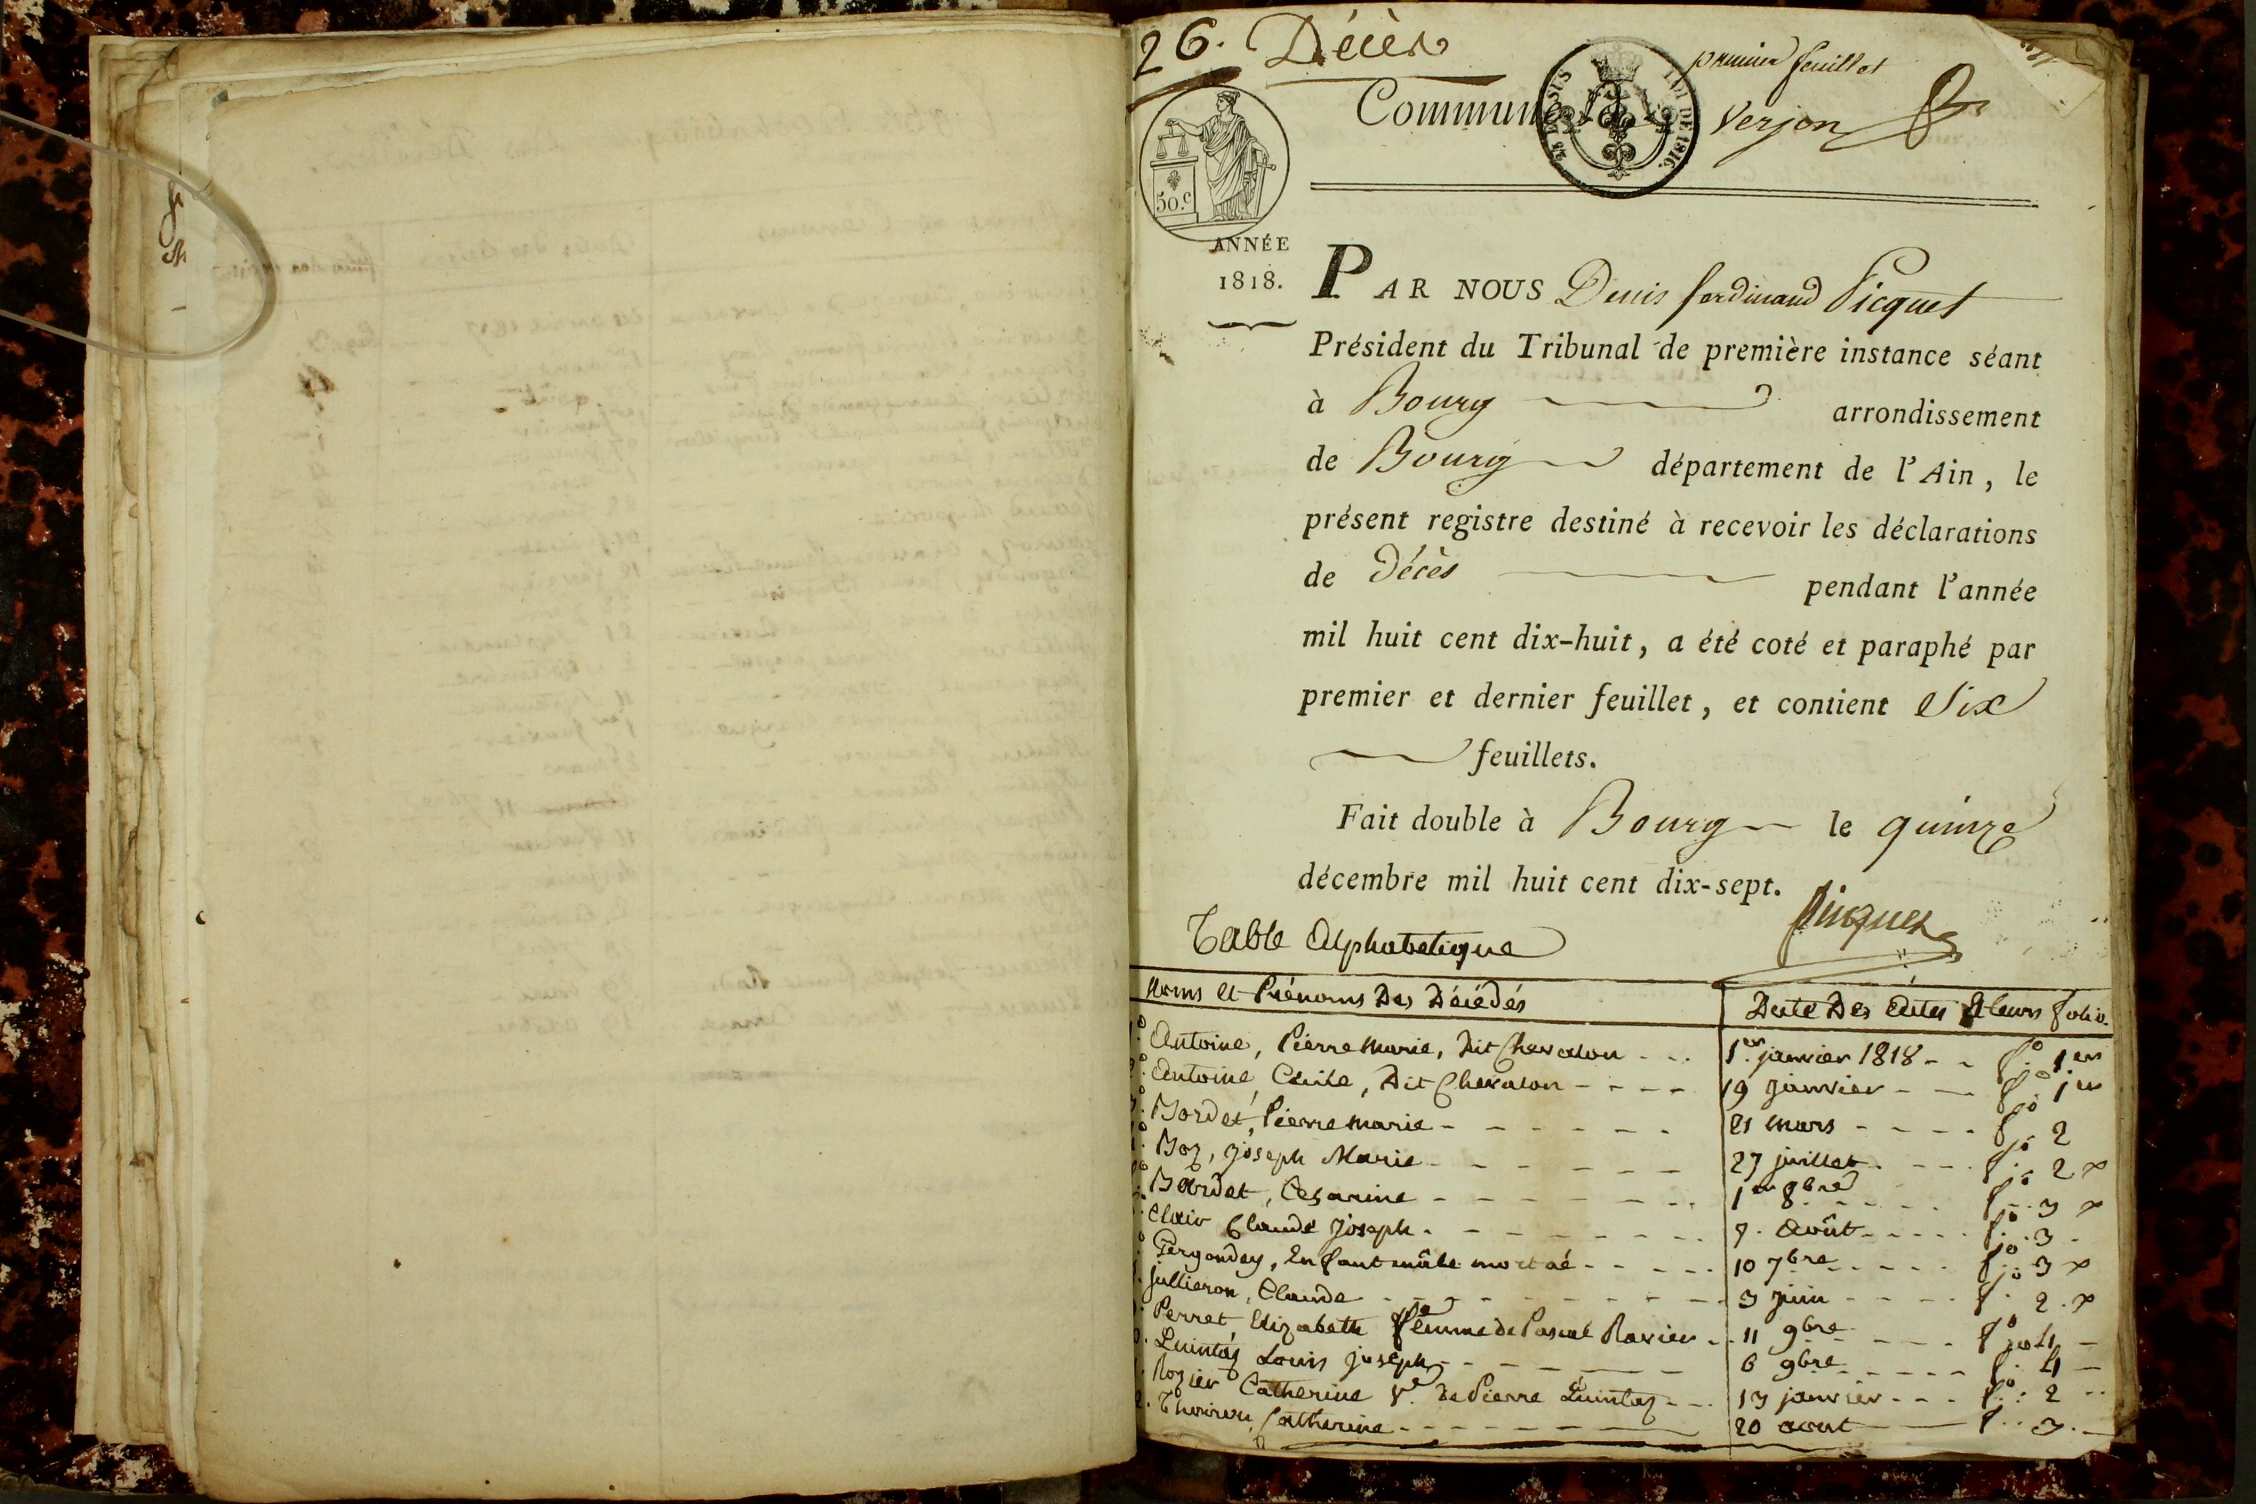 26. Décès
premier feuillet
Commune de Verjon
50.c
LOI DE 1816.
ANNÉE
1818.
PAR NOUS Denis ferdinand Picquet
Président du Tribunal de première instance séant
à Bourg arrondissement
de Bourg département de l'Ain, le
présent registre destiné à recevoir les déclarations
de Décès pendant l'année
mil huit cent dix-huit, a été coté et paraphé par
premier et dernier feuillet, et contient Six
feuillets.
Fait double à Bourg le quinze
décembre mil huit cent dix-sept.
Picquet
Table Alphabetique
Noms et Prénoms Des Décédés Date Des Actes & leurs folio.
Antoine, Pierre Marie, Dit Chevalon 1er janvier 1818 fo. 1er
Antoine, Cécile, Dit Chevalon 19 janvier fo. 1er
Bordet, Pierre Marie 21 mars fo. 2
Boz, Joseph Marie 27 juillet fo. 2 x
Bordet, Cesarine 1er 8bre fo. 3 x
Clair Claude Joseph 7. Août fo. 3
Pergondey, Enfant mâle mort né 10 7bre fo. 3 x
jullieron, Claude 3 juin fo. 2. x
Perret, Elizabeth femme de Pascal Ravier 11 9bre fo. 4
Quintaz Louis joseph 6 9bre fo. 4
Rozier Catherine Ve. de Pierre Quintaz 13 janvier fo. 2
Catherine 20 aout fo. 3.